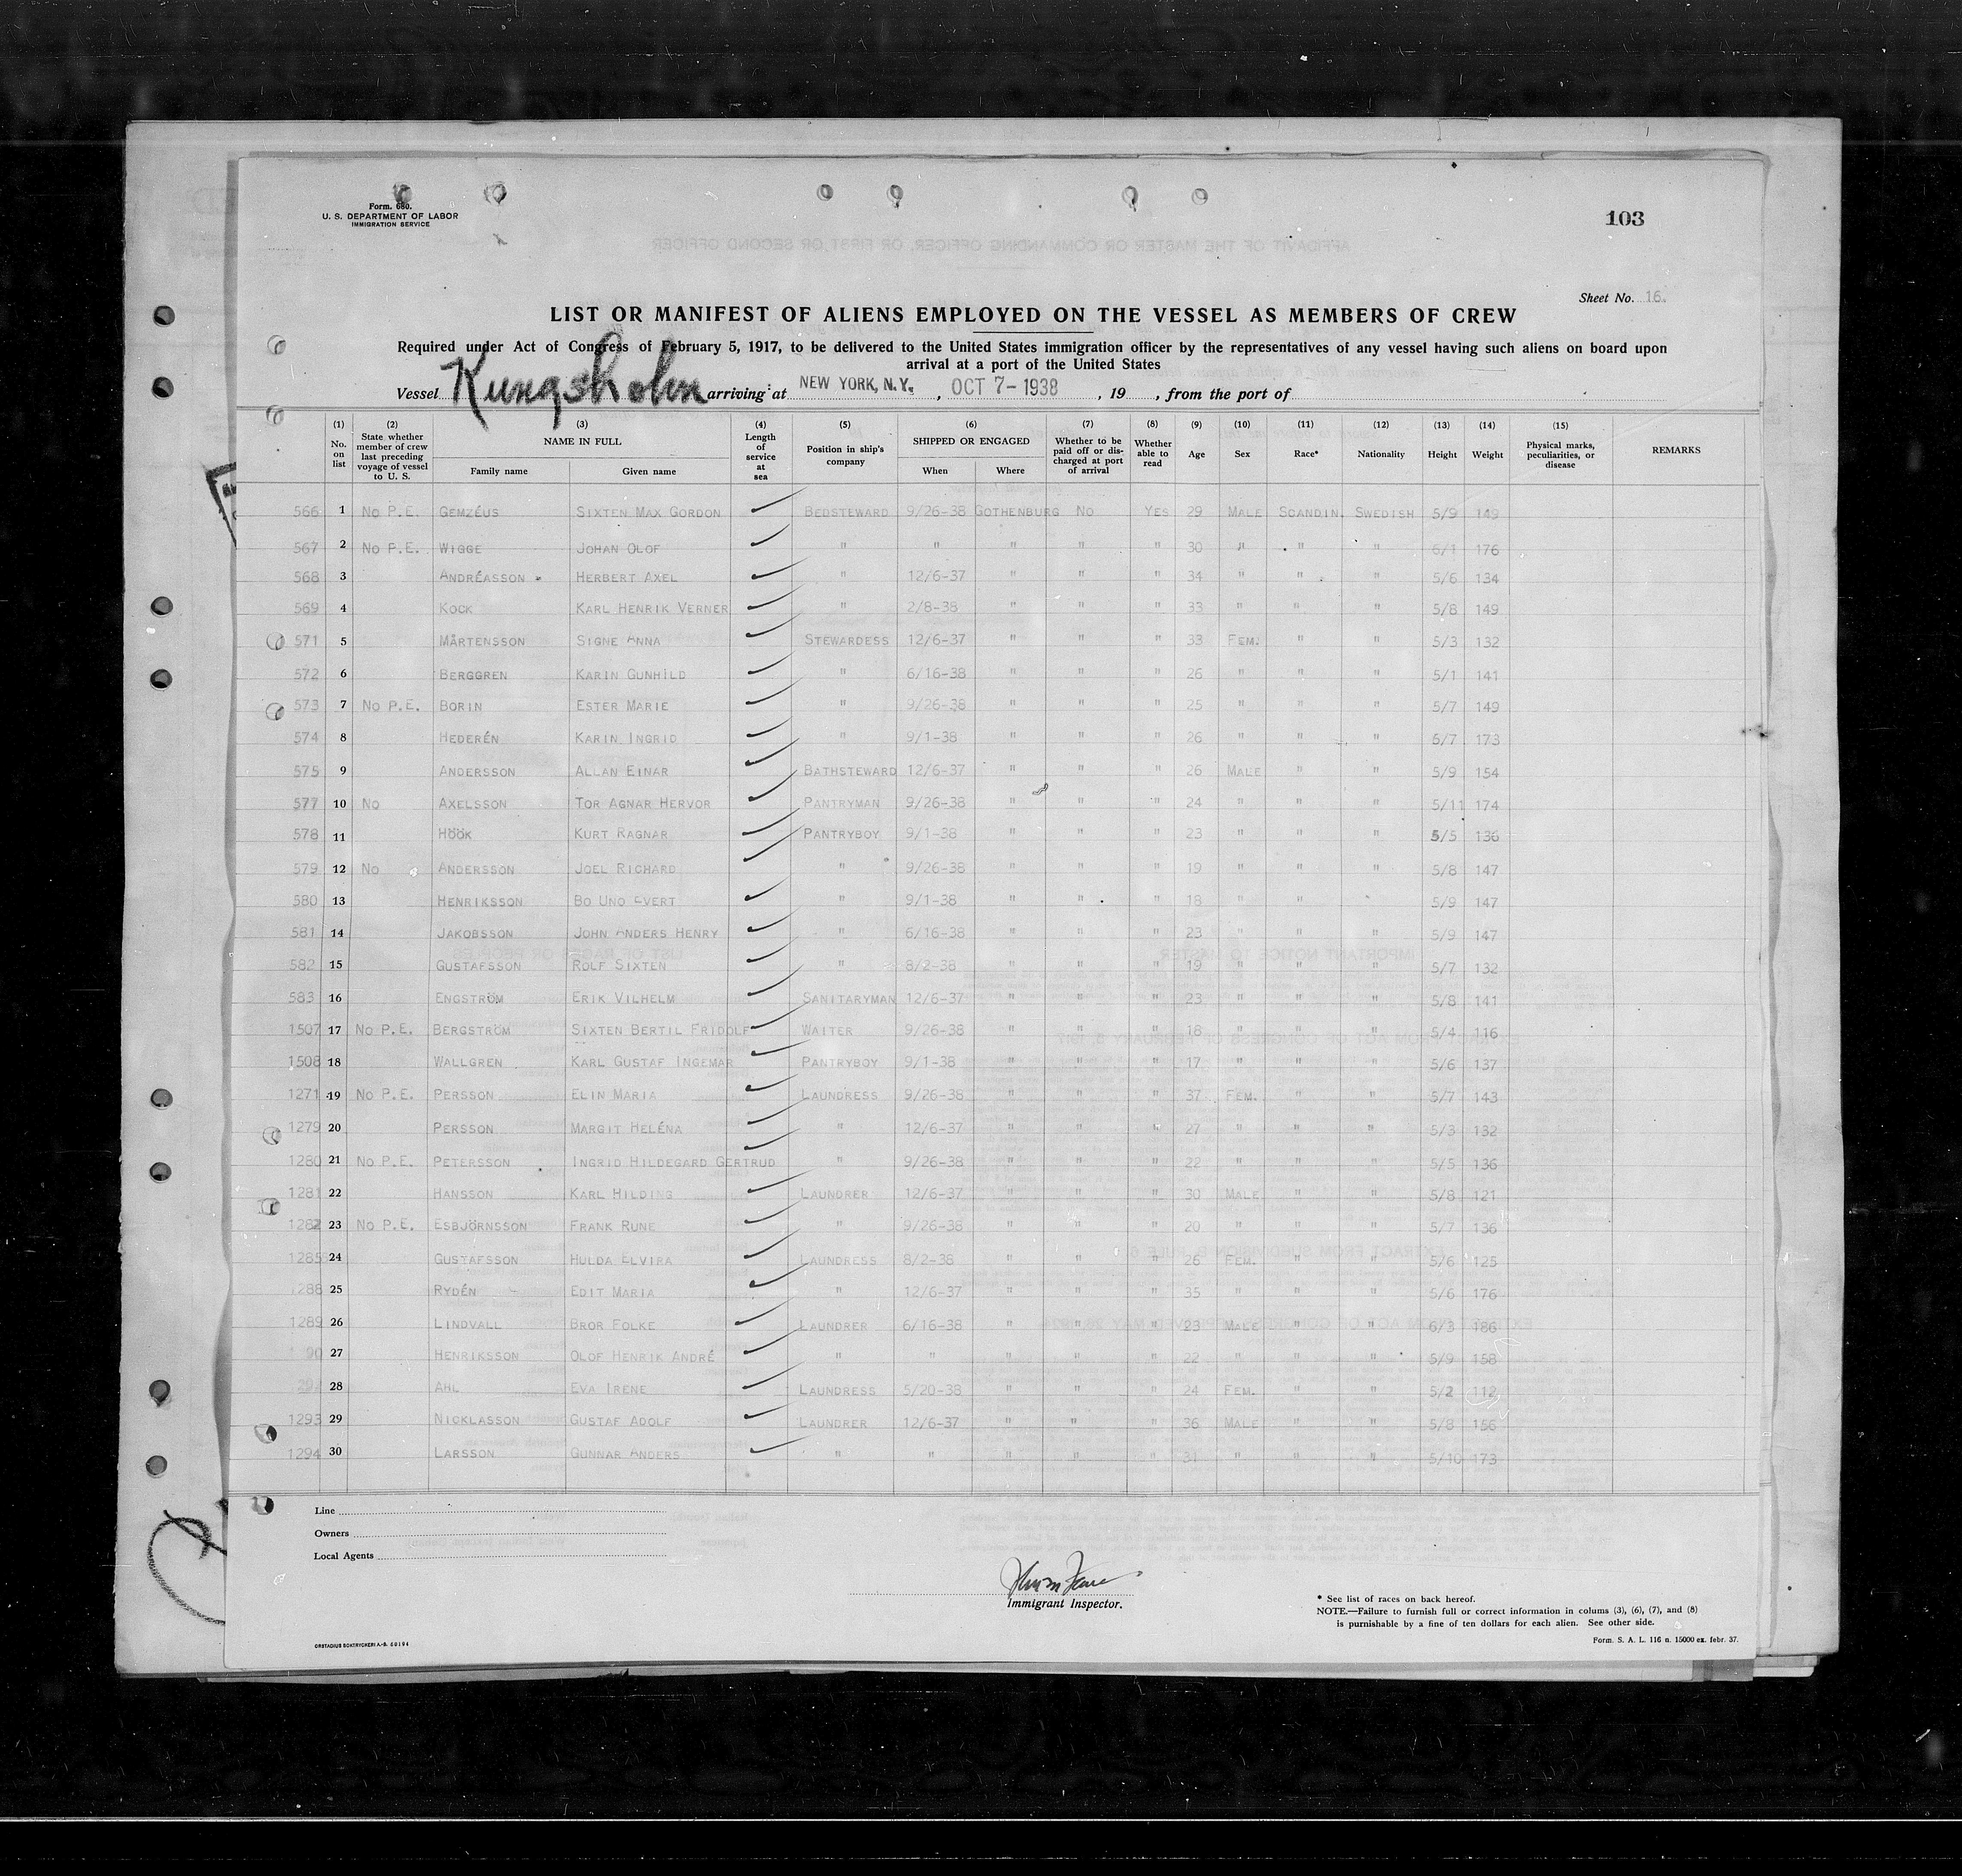 Form. 680.
U. S. DEPARTMENT OF LABOR
IMMIGRATION SERVICE
103
Sheet No. 16.
LIST OR MANIFEST OF ALIENS EMPLOYED ON THE VESSEL AS MEMBERS OF CREW
Required under Act of Congress of February 5, 1917, to be delivered to the United States immigration officer by the representatives of any vessel having such aliens on board upon
arrival at a port of the United States
Vessel Kungsholm arriving at NEW YORK, N.Y., OCT 7-1938, 19 , from the port of
(1) No. on list (2) State whether member of crew last preceding voyage of vessel to U. S. (3) NAME IN FULL Family name Given name (4) Length of service at sea (5) Position in ship's company (6) SHIPPED OR ENGAGED When Where (7) Whether to be paid off or discharged at port of arrival (8) Whether able to read (9) Age (10) Sex (11) Race* (12) Nationality (13) Height (14) Weight (15) Physical marks, peculiarities, or disease REMARKS
566 1 No P.E. GEMZÉUS SIXTEN MAX GORDON BEDSTEWARD 9/26-38 GOTHENBURG No YES 29 MALE SCANDIN. SWEDISH 5/9 149
567 2 No P.E. WIGGE JOHAN OLOF " " " " " 30 " " " 6/1 176
568 3 ANDRÉASSON HERBERT AXEL " 12/6-37 " " " 34 " " " 5/6 134
569 4 KOCK KARL HENRIK VERNER " 2/8-38 " " " 33 " " " 5/8 149
571 5 MÅRTENSSON SIGNE ANNA STEWARDESS 12/6-37 " " " 33 FEM. " " 5/3 132
572 6 BERGGREN KARIN GUNHILD " 6/16-38 " " " 26 " " " 5/1 141
573 7 No P.E. BORIN ESTER MARIE " 9/26-38 " " " 25 " " " 5/7 149
574 8 HEDERÉN KARIN INGRID " 9/1-38 " " " 26 " " " 5/7 173
575 9 ANDERSSON ALLAN EINAR BATHSTEWARD 12/6-37 " " " 26 MALE " " 5/9 154
577 10 No AXELSSON TOR AGNAR HERVOR PANTRYMAN 9/26-38 " " " 24 " " " 5/11 174
578 11 HÖÖK KURT RAGNAR PANTRYBOY 9/1-38 " " " 23 " " " 5/5 136
579 12 No ANDERSSON JOEL RICHARD " 9/26-38 " " " 19 " " " 5/8 147
580 13 HENRIKSSON BO UNO EVERT " 9/1-38 " " " 18 " " " 5/9 147
581 14 JAKOBSSON JOHN ANDERS HENRY " 6/16-38 " " " 23 " " " 5/9 147
582 15 GUSTAFSSON ROLF SIXTEN " 8/2-38 " " " 19 " " " 5/7 132
583 16 ENGSTRÖM ERIK VILHELM SANITARYMAN 12/6-37 " " " 23 " " " 5/8 141
1507 17 No P.E. BERGSTRÖM SIXTEN BERTIL FRIDOLF WAITER 9/26-38 " " " 18 " " " 5/4 116
1508 18 WALLGREN KARL GUSTAF INGEMAR PANTRYBOY 9/1-38 " " " 17 " " " 5/6 137
1271 19 No P.E. PERSSON ELIN MARIA LAUNDRESS 9/26-38 " " " 37 FEM. " " 5/7 143
1279 20 PERSSON MARGIT HELÉNA " 12/6-37 " " " 27 " " " 5/3 132
1280 21 No P.E. PETERSSON INGRID HILDEGARD GERTRUD " 9/26-38 " " " 22 " " " 5/5 136
1281 22 HANSSON KARL HILDING LAUNDRER 12/6-37 " " " 30 MALE " " 5/8 121
1282 23 No P.E. ESBJÖRNSSON FRANK RUNE " 9/26-38 " " " 20 " " " 5/7 136
1285 24 GUSTAFSSON HULDA ELVIRA LAUNDRESS 8/2-38 " " " 26 FEM. " " 5/6 125
1288 25 RYDÉN EDIT MARIA " 12/6-37 " " " 35 " " " 5/6 176
1289 26 LINDVALL BROR FOLKE LAUNDRER 6/16-38 " " " 23 MALE " " 6/3 186
90 27 HENRIKSSON OLOF HENRIK ANDRÉ " " " " " 22 " " " 5/9 158
28 AHL EVA IRENE LAUNDRESS 5/20-38 " " " 24 FEM. " " 5/2 112
1293 29 NICKLASSON GUSTAF ADOLF LAUNDRER 12/6-37 " " " 36 MALE " " 5/8 156
1294 30 LARSSON GUNNAR ANDERS " " " " " 31 " " " 5/10 173
Line
Owners
Local Agents
Immigrant Inspector.
* See list of races on back hereof.
NOTE.—Failure to furnish full or correct information in colums (3), (6), (7), and (8)
is purnishable by a fine of ten dollars for each alien. See other side.
ORSTADIUS BOKTRYCKERI A.-B. 50194
Form. S. A. L. 116 n. 15000 ex. febr. 37.